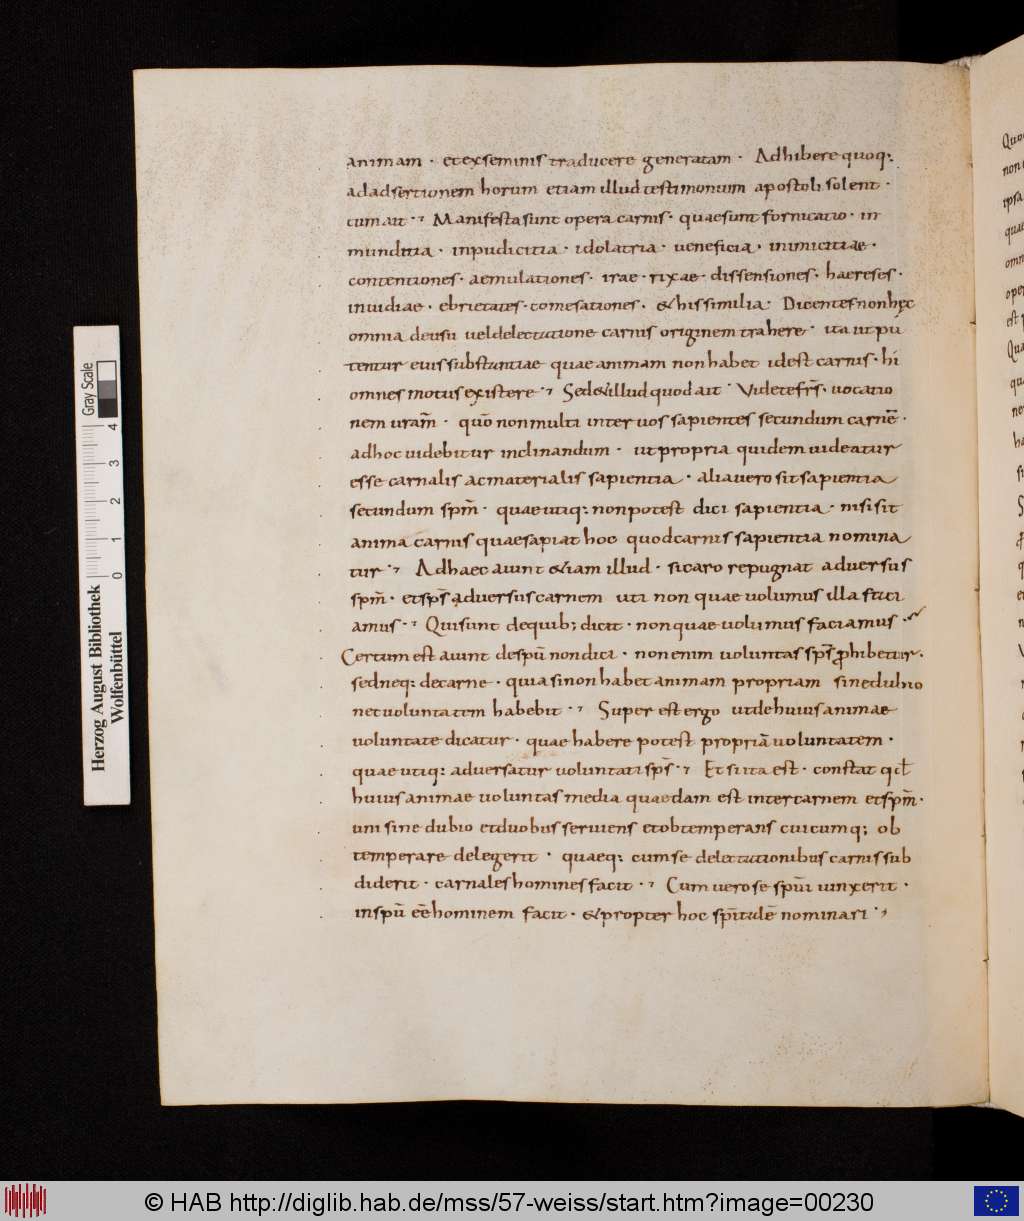 animam · et ex seminis traducere generatam · Adhibere quoq;
ad adsertionem horum etiam illud testimonium apostoli solent ·
cum ait · Manifesta sunt opera carnis · quae sunt fornicatio · in
munditia · inpudicitia · idolatria · ueneficia · inimicitiae ·
contentiones · aemulationes · irae · rixae · dissensiones · haereses ·
inuidiae · ebrietates · comesationes · & his similia · Dicentes non hęc
omnia de usu uel delectatione carnis originem trahere · ita ut pu
tentur eius substantiae quae animam non habet idest carnis · hi
omnes motus existere · Sed & illud quod ait · Videte fr̄s · uocatio
nem uram̄ · quō non multi inter uos sapientes secundum carnē ·
ad hoc uidebitur inclinandum · ut propria quidem uideatur
esse carnalis ac materialis sapientia · alia uero sit sapientia
secundum spm̄ · quae utiq; non potest dici sapientia · nisi sit
anima carnis quae sapiat hoc quod carnis sapientia nomina
tur · Ad haec aiunt & iam illud · si caro repugnat aduersus
spm̄ · et sps̄ aduersus carnem uti non quae uolumus illa faci
amus · Qui sunt de quib; dicit · non quae uolumus faciamus ·
Certum est aiunt de spū non dici · non enim uoluntas sps̄ ꝓhibetur ·
sed neq; de carne · quia si non habet animam propriam sine dubio
nec uoluntatem habebit · Super est ergo ut de huius animae
uoluntate dicatur · quae habere potest propriā uoluntatem ·
quae utiq; aduersatur uoluntati sps̄ · Et si ita est · constat qđ
huius animae uoluntas media quaedam est inter carnem et spm̄ ·
uni sine dubio et duobus seruiens et obtemperans cuicumq; ob
temperare delegerit · quaeq; cum se delectationibus carnis sub
diderit · carnales homines facit · Cum uero se spūi iunxerit ·
in spū eē hominem facit · & propter hoc spītalē nominari
Gray Scale
0 1 2 3 4
Herzog August Bibliothek
Wolfenbüttel
© HAB http://diglib.hab.de/mss/57-weiss/start.htm?image=00230